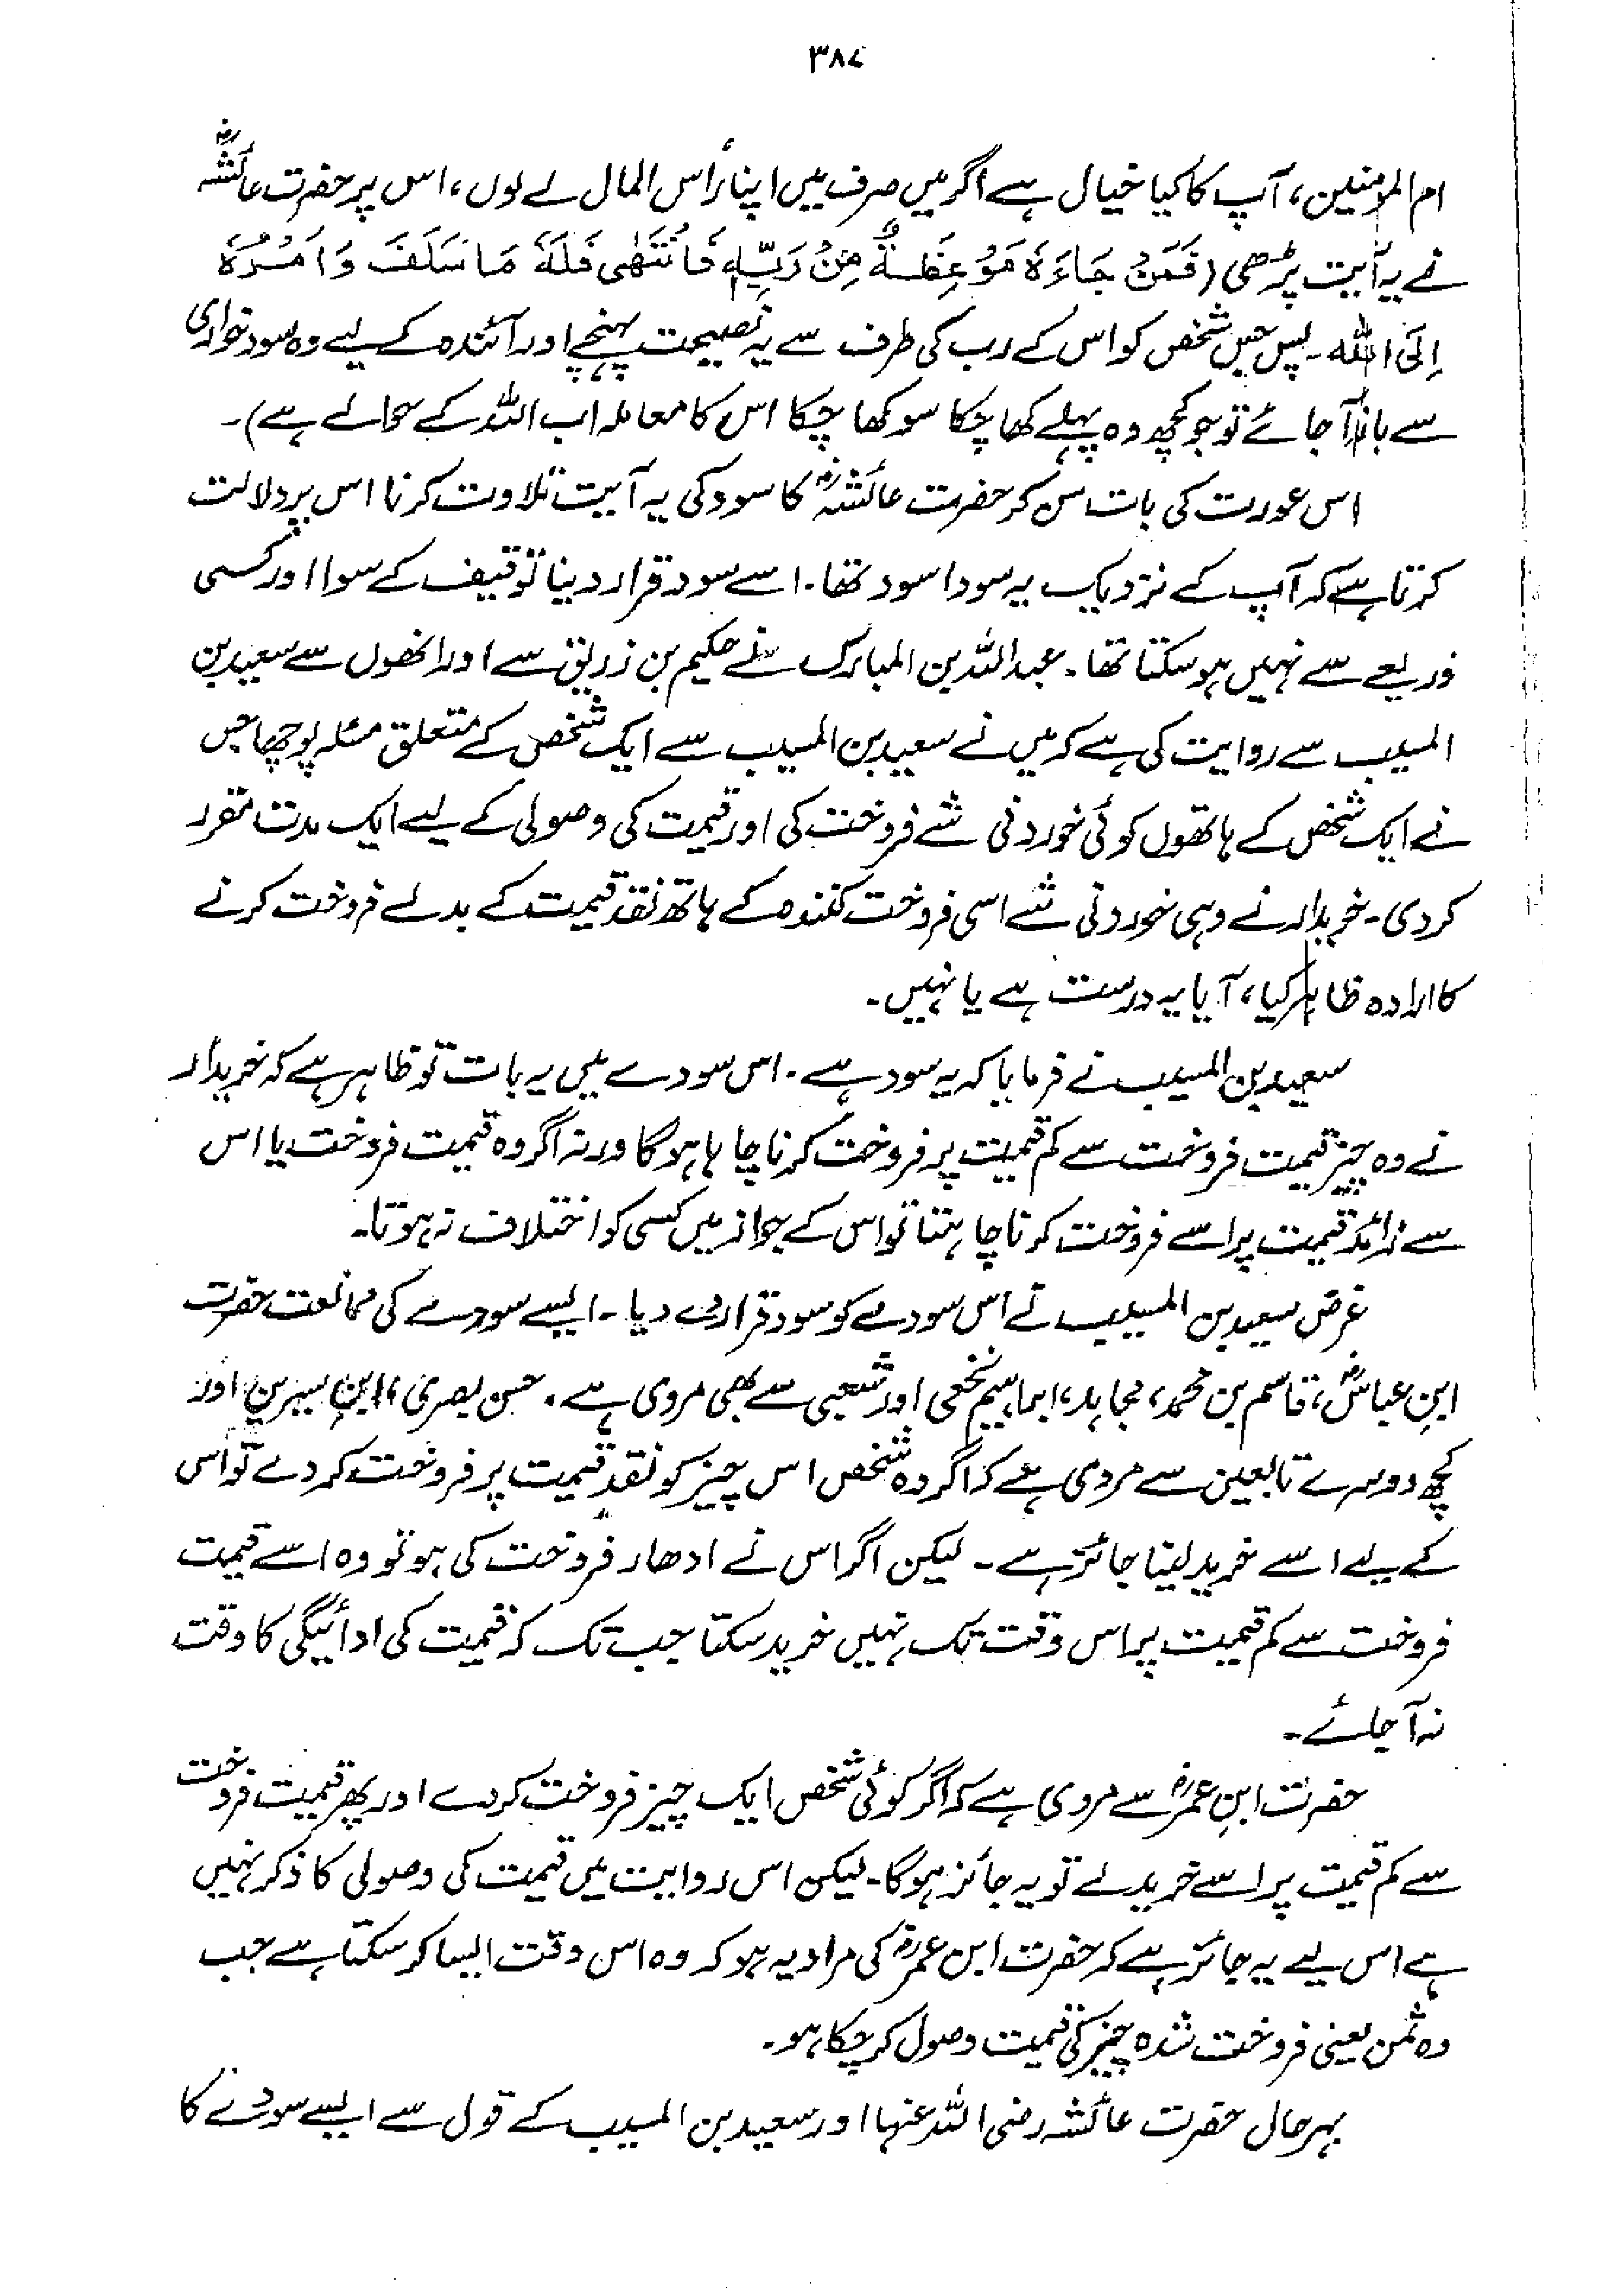 ۳۸۷
ام المومنین، آپ کا کیا خیال ہے اگر میں صرف میں اپنا رأس المال لے لوں، اس پر حضرت عائشہؓ
نے یہ آیت پڑھی (فَمَنْ جَاءَهٗ مَوْعِظَةٌ مِّنْ رَبِّهٖ فَانْتَهٰى فَلَهٗ مَا سَلَفَ وَاَمْرُهٗ
اِلَى اللّٰه۔ پس جس شخص کو اس کے رب کی طرف سے یہ نصیحت پہنچے اور آئندہ کے لیے وہ سود خواری
سے باز آ جائے تو جو کچھ وہ پہلے کھا چکا سو کھا چکا اس کا معاملہ اب اللہ کے حوالے ہے)۔
اس عورت کی بات سن کر حضرت عائشہؓ کا سود کی یہ آیت تلاوت کرنا اس پر دلالت
کرتا ہے کہ آپ کے نزدیک یہ سودا سود تھا۔ اسے سود قرار دینا توقیف کے سوا اور کسی
ذریعے سے نہیں ہو سکتا تھا۔ عبداللہ بن المبارک نے حکیم بن زریق سے اور انھوں سے سعید بن
المسیب سے روایت کی ہے کہ میں نے سعید بن المسیب سے ایک شخص کے متعلق مسئلہ پوچھا جس
نے ایک شخص کے ہاتھوں کوئی خوردنی شے فروخت کی اور قیمت کی وصولی کے لیے ایک مدت مقرر
کر دی۔ خریدار نے وہی خوردنی شے اسی فروخت کنندہ کے ہاتھ نقد قیمت کے بدلے فروخت کرنے
کا ارادہ ظاہر کیا، آیا یہ درست ہے یا نہیں۔
سعید بن المسیب نے فرمایا کہ یہ سود ہے۔ اس سودے میں یہ بات تو ظاہر ہے کہ خریدار
نے وہ چیز قیمت فروخت سے کم قیمت پر فروخت کرنا چاہا ہو گا ورنہ اگر وہ قیمت فروخت یا اس
سے زائد قیمت پر اسے فروخت کرنا چاہتا تو اس کے جواز میں کسی کو اختلاف نہ ہوتا۔
غرض سعید بن المسیب نے اس سودے کو سود قرار دے دیا۔ ایسے سودے کی ممانعت حضرت
ابنِ عباسؓ، قاسم بن محمد، مجاہد، ابراہیم نخعی اور شعبی سے بھی مروی ہے۔ حسن بصری، ابنِ سیرین اور
کچھ دوسرے تابعین سے مروی ہے کہ اگر وہ شخص اس چیز کو نقد قیمت پر فروخت کر دے تو اس
کے لیے اسے خرید لینا جائز ہے۔ لیکن اگر اس نے ادھار فروخت کی ہو تو وہ اسے قیمت
فروخت سے کم قیمت پر اس وقت تک نہیں خرید سکتا جب تک کہ قیمت کی ادائیگی کا وقت
نہ آ جائے۔
حضرت ابنِ عمرؓ سے مروی ہے کہ اگر کوئی شخص ایک چیز فروخت کر دے اور پھر قیمت فروخت
سے کم قیمت پر اسے خرید لے تو یہ جائز ہو گا۔ لیکن اس روایت میں قیمت کی وصولی کا ذکر نہیں
ہے اس لیے یہ جائز ہے کہ حضرت ابن عمرؓ کی مراد یہ ہو کہ وہ اس وقت ایسا کر سکتا ہے جب
وہ ثمن یعنی فروخت شدہ چیز کی قیمت وصول کر چکا ہو۔
بہرحال حضرت عائشہ رضی اللہ عنہا اور سعید بن المسیب کے قول سے ایسے سودے کا